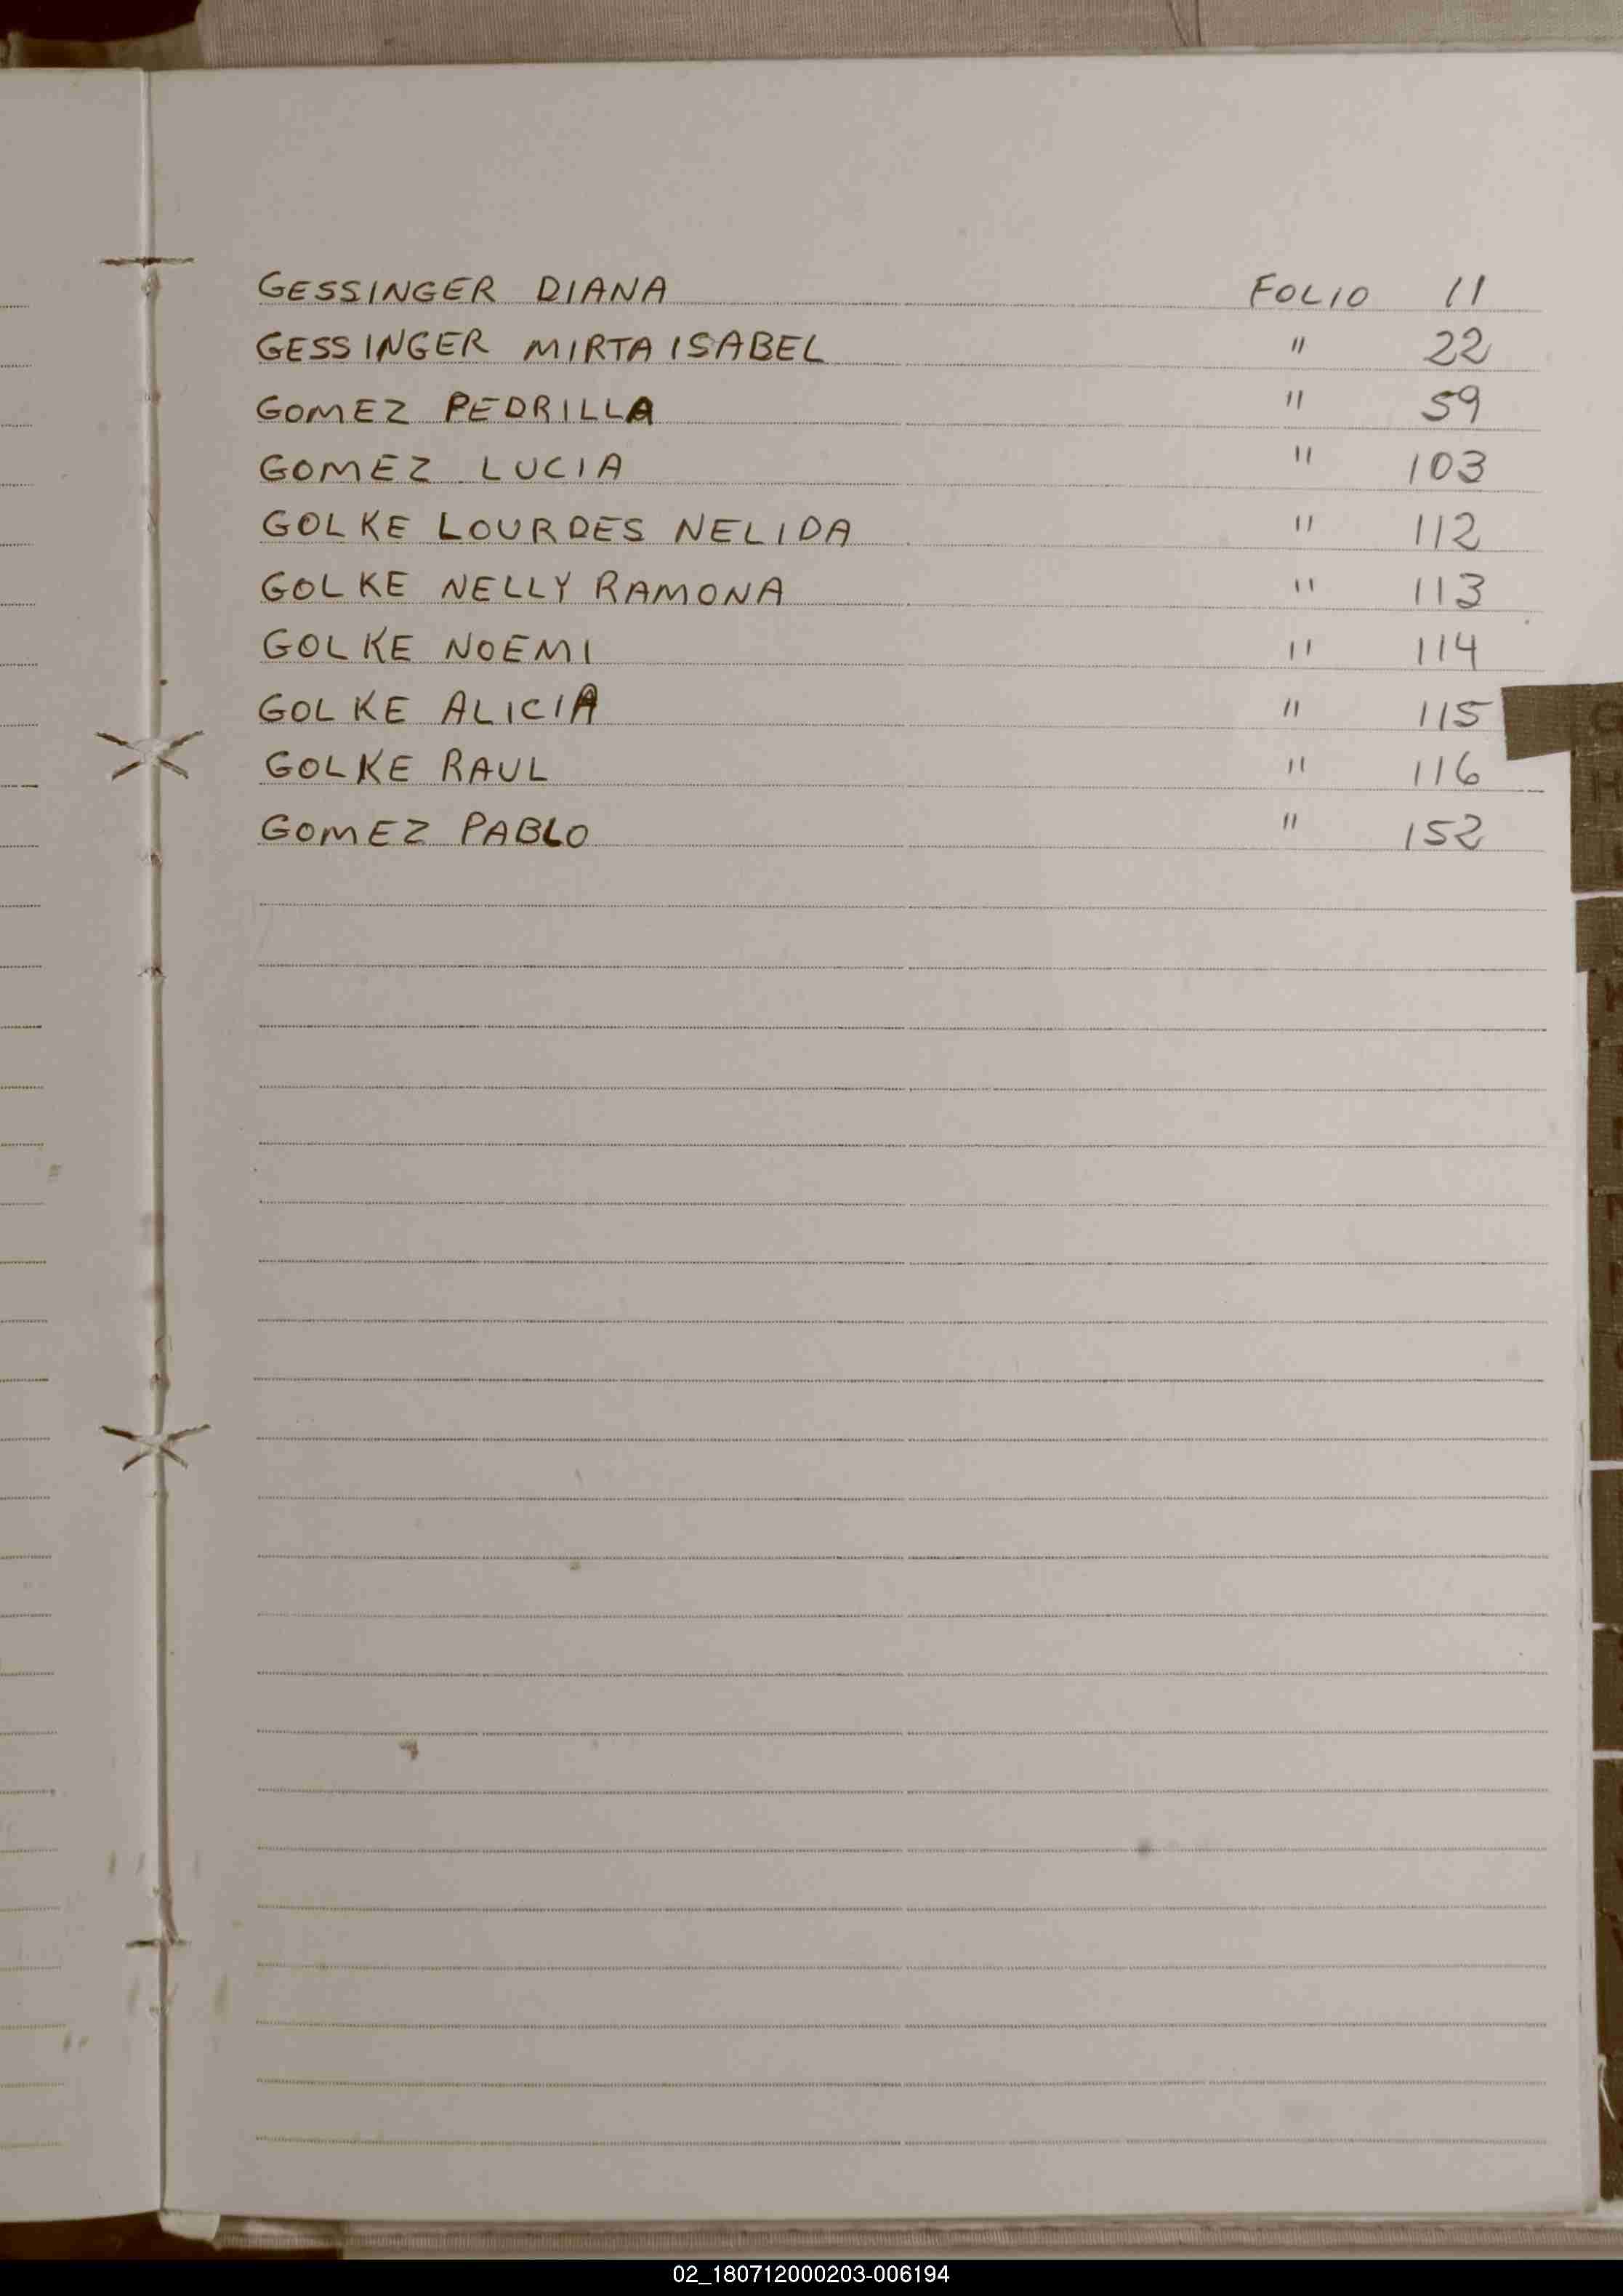 GESSINGER DIANA FOLIO 11
GESSINGER MIRTA ISABEL " 22
GOMEZ PEDRILLA " 59
GOMEZ LUCIA " 103
GOLKE LOURDES NELIDA " 112
GOLKE NELLY RAMONA " 113
GOLKE NOEMI " 114
GOLKE ALICIA " 115
GOLKE RAUL " 116
GOMEZ PABLO " 152
02_180712000203-006194